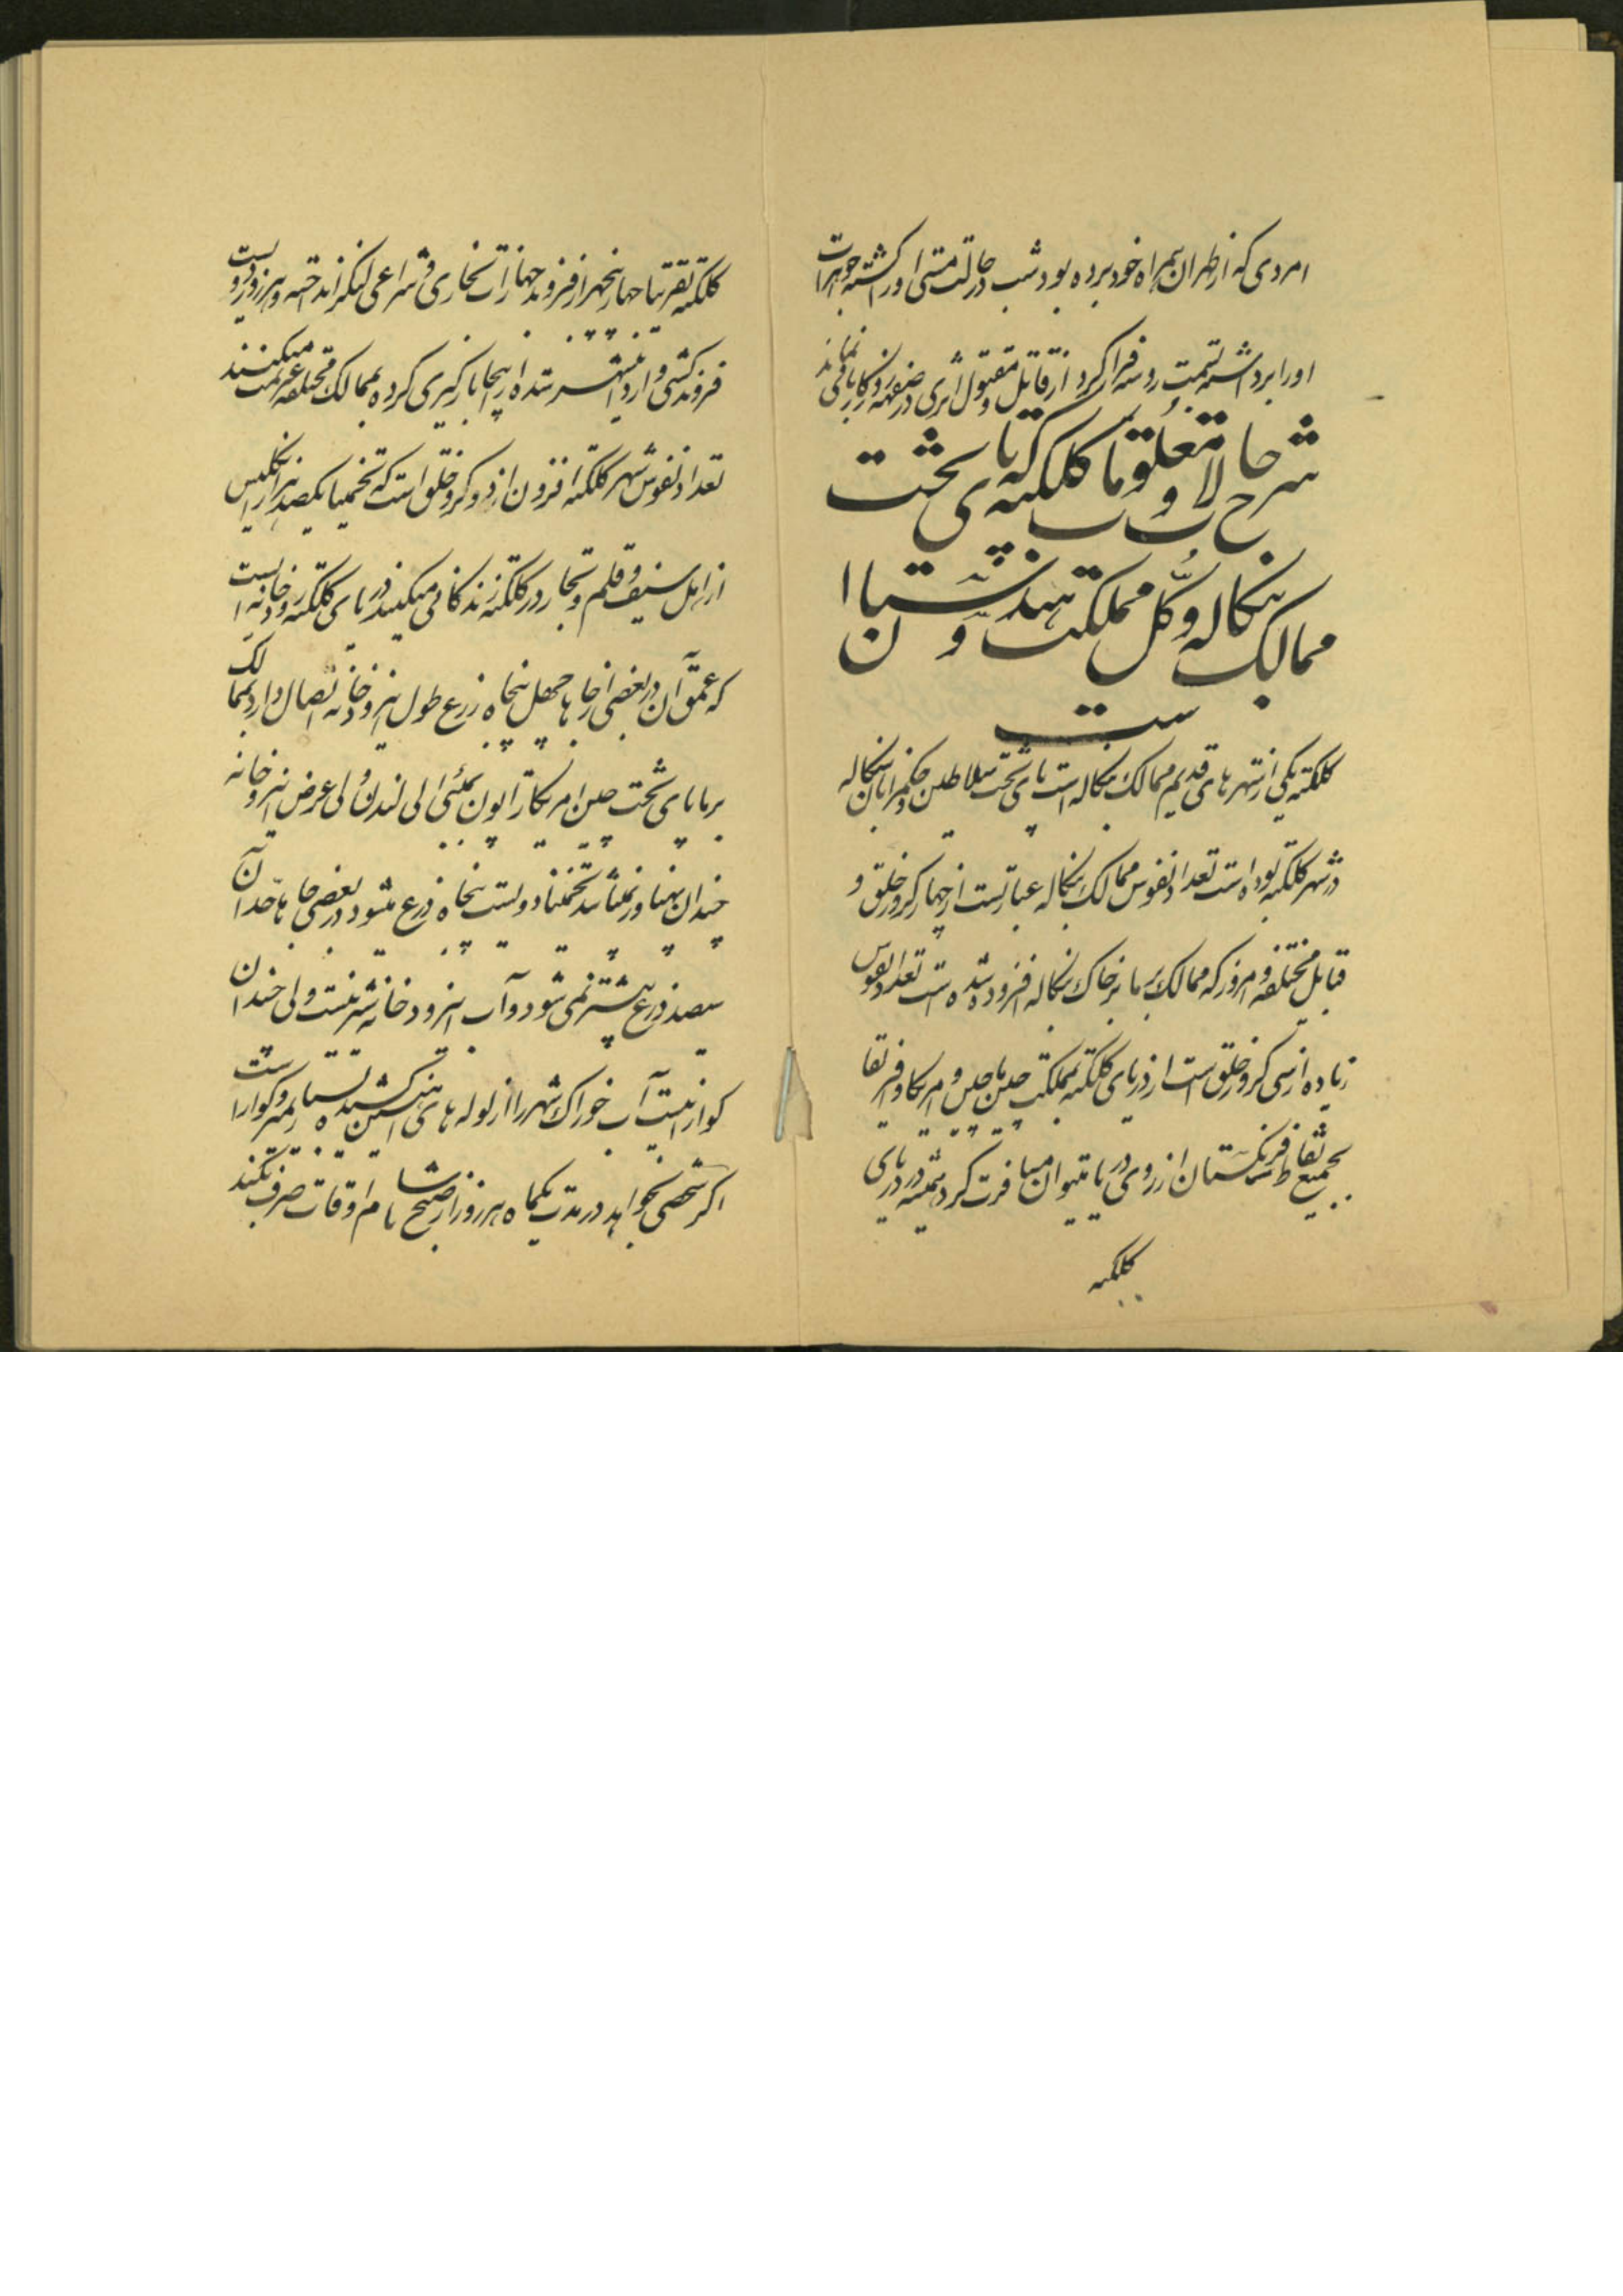 امردی که از طهران بهمراه خود برده بود شب در حالت مستی او را کشته جواهرات
او را برداشته بسمت روسیه فرار کرد از قاتل و مقتول اثری در صفحه روزکار باقی نماند
شرح حالات و متعلقات کلکته که پای تخت
ممالک بنکاله و کل مملکت هندوستان
است
کلکته یکی از شهرهای قدیم ممالک بنکاله است پای تخت سلاطین و حکمرانان بنکاله
در شهر کلکته بوده است تعداد نفوس ممالک بنکاله عبارتست از چهار کرور خلق و
قبایل مختلفه و امروز که ممالک برما بر خاک بنکاله افزوده شده است تعداد نفوس
زیاده از سی کرور خلق است از دریای کلکته بمملکت چین ماچین و امریکا و افریقا
بجمیع نقاط فرنکستان از روی دریا میتوان مسافرت کرد همیشه در دریای
کلکته
کلکته تقریبا چهار پنجهزار فروند جهازات بخاری و شراعی لنکر انداخته و هر روز دویست
فروند کشتی وارد این شهر شده از اینجا بارکیری کرده بممالک مختلفه عزیمت میکنند
تعداد نفوس شهر کلکته افزون از دو کرور خلق است که تخمینا یکصد هزار انکلیس
از اهل سیف و قلم و تجار در کلکته زندکانی میکنند دریای کلکته رودخانه ایست
که عمق آن در بعضی از جاها چهل پنجاه زرع طول این رودخانه اتصال دارد بممالک
برما پای تخت چین امریکا ژاپون بمبئی الی لندن ولی عرض این رودخانه
چندان پهناور نمیباشد تخمینا دویست پنجاه ذرع میشود در بعضی جاها حد آن
سیصد ذرع بیشتر نمی شود و آب این رودخانه شیرینست ولی چندان
کوارا نیست آب خوراک شهر را از لوله های آهنین کشیده بسیار نمیر و کواراست
اکر شخصی بخواهد در مدت یکماه هر روز از صبح تا شام اوقات صرف بکند